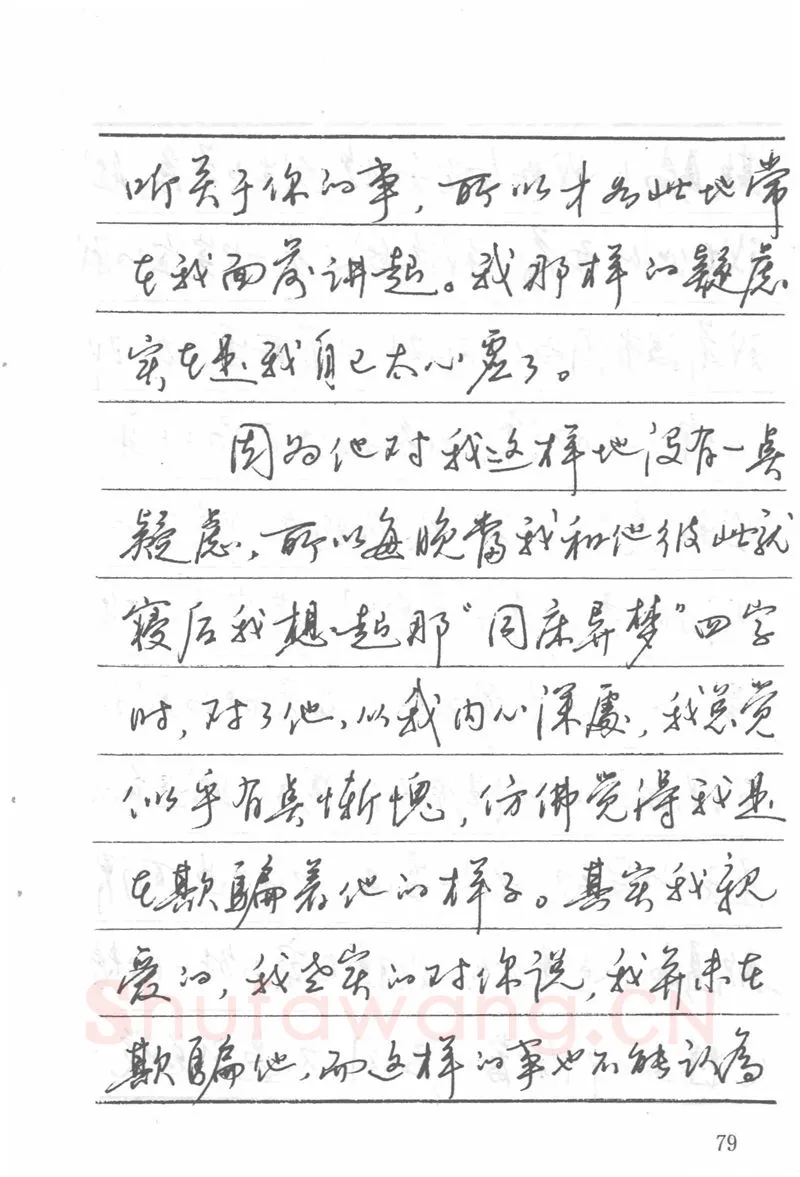 听关于你的事，所以才如此地常
在我面前讲起。我那样的疑虑
实在是我自己太心虚了。
因为他对我这样地没有一点
疑虑，所以每晚当我和他彼此就
寝后我想起那“同床异梦”四字
时，对了他，从我内心深處，我总觉
似乎有点惭愧，仿佛觉得我是
在欺騙着他的样子。其实我親
爱的，我老实的对你说，我并未在
欺騙他，而这样的事也不能认為
Shufawang.CN
79